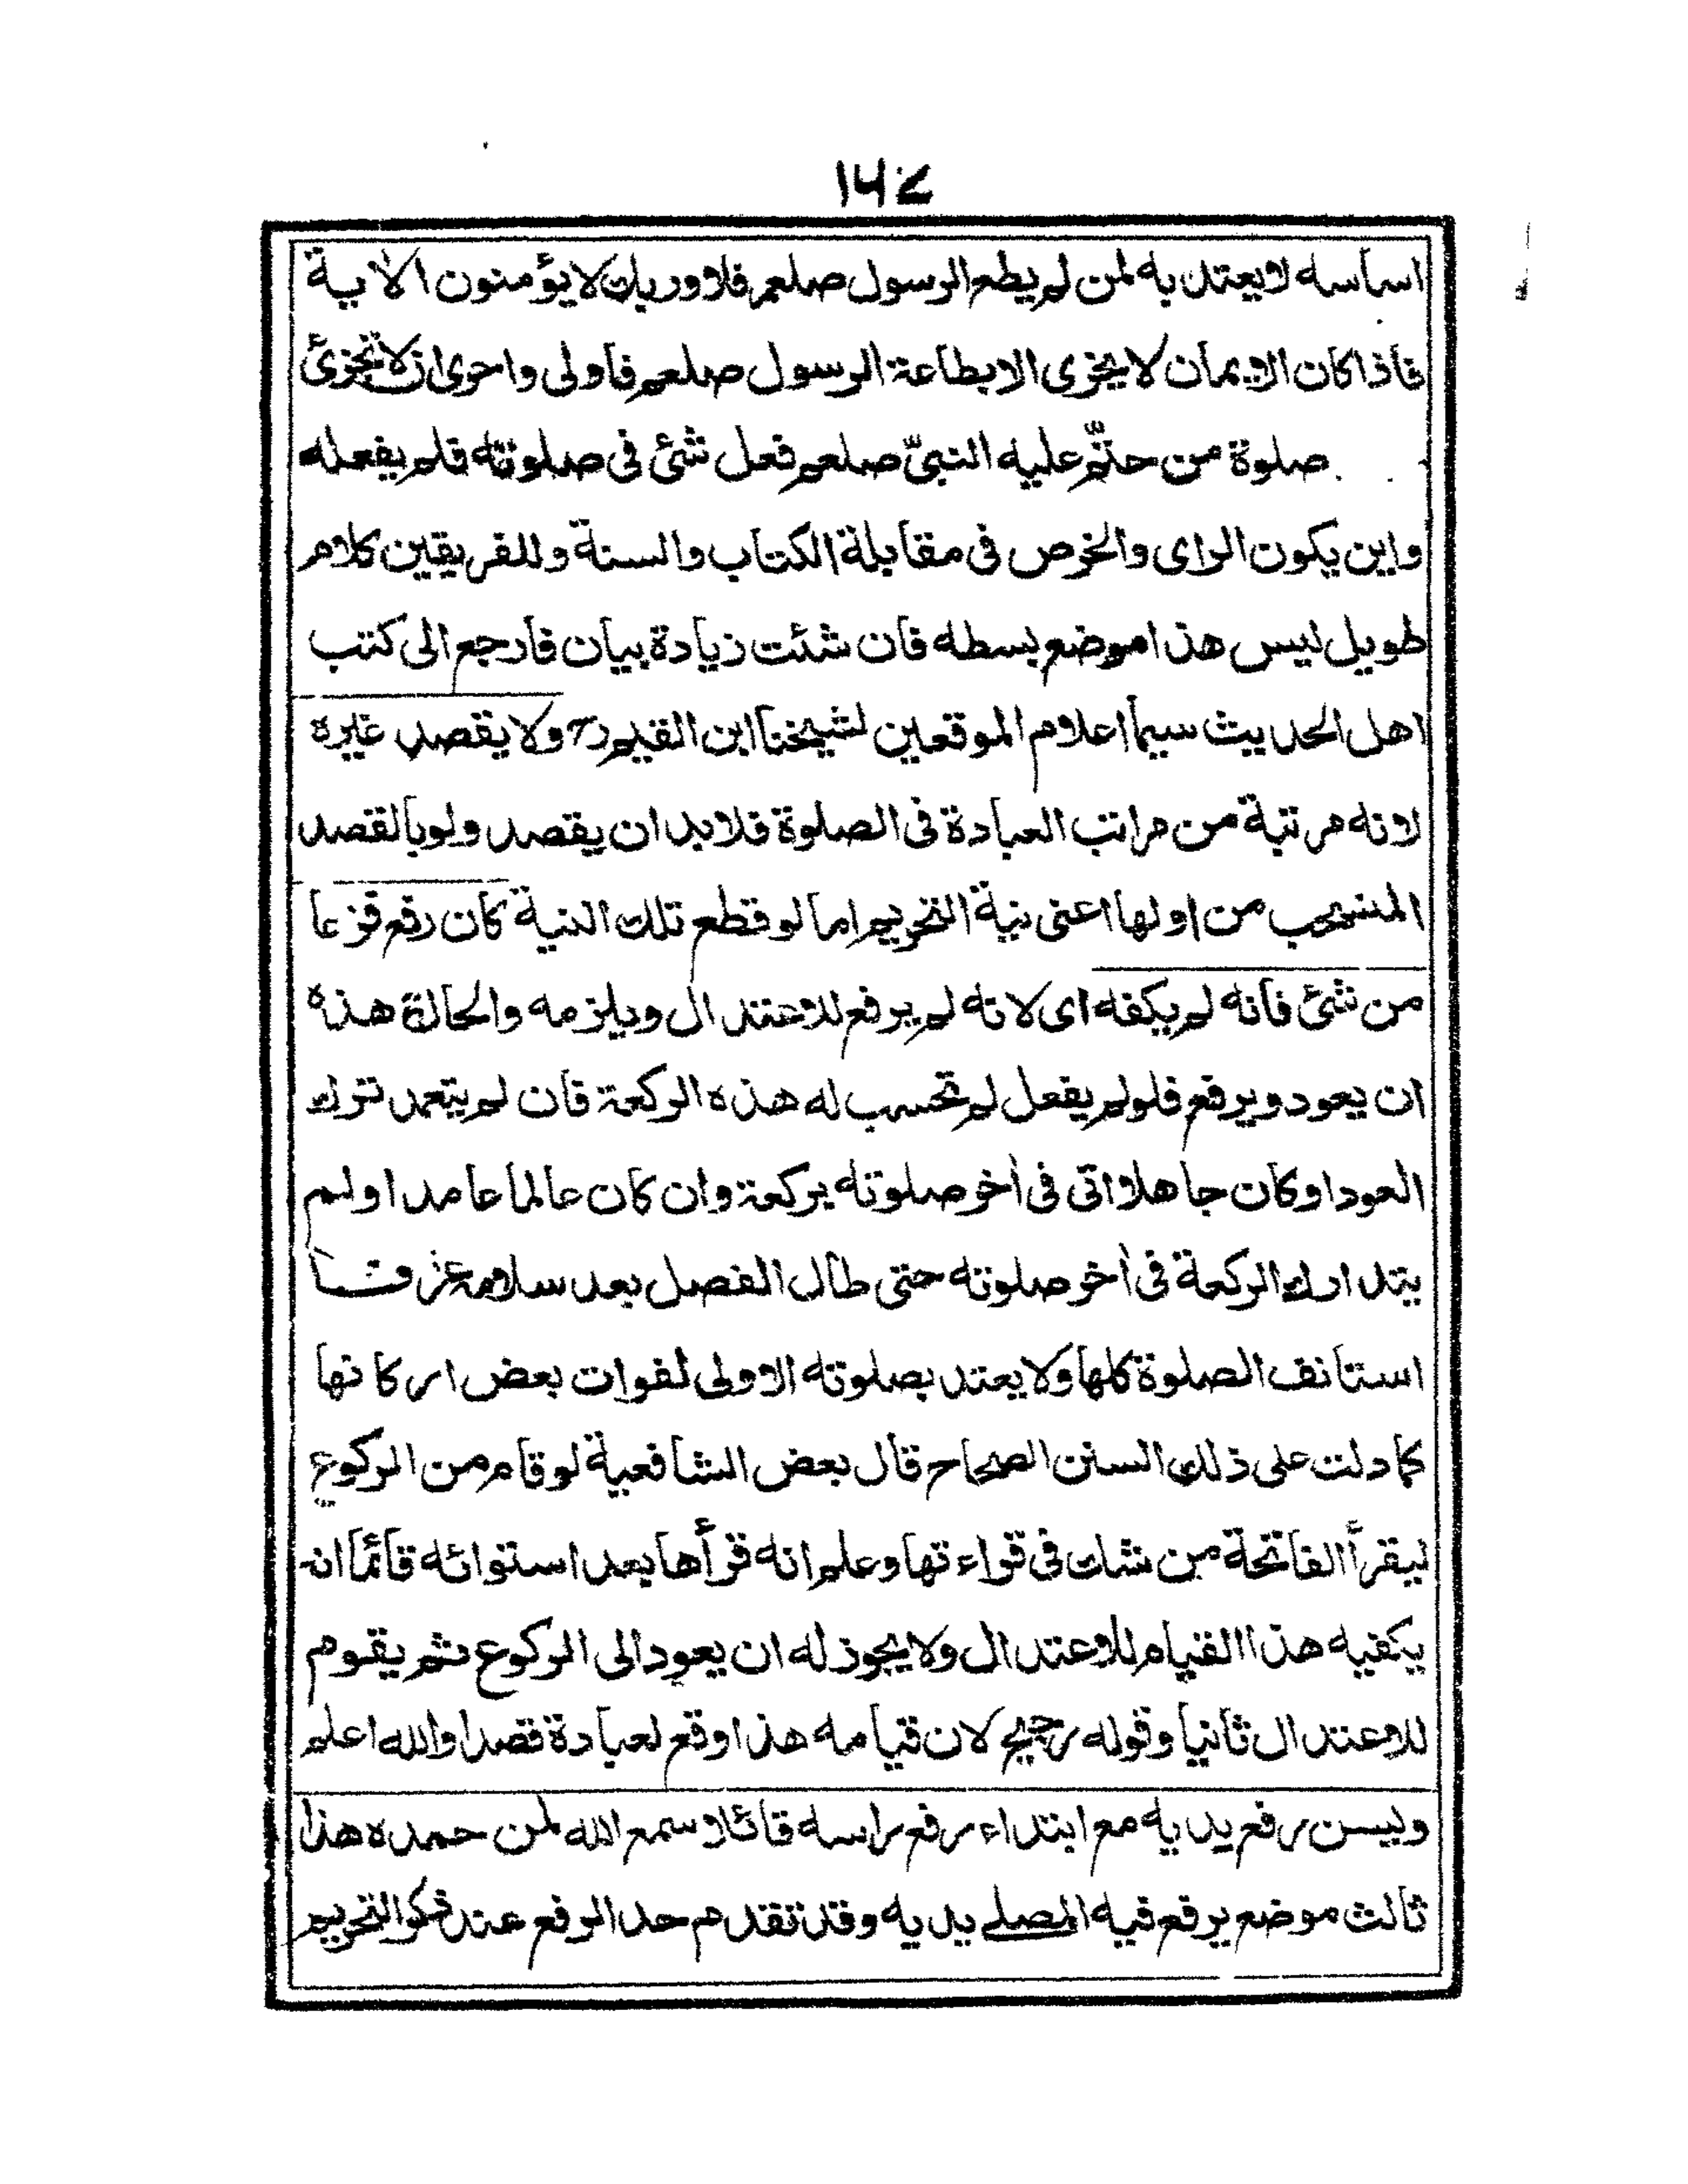 ١٦٤
اساسه لا يعتد به لمن لم يطع الرسول صلعم فلا وربك لا يؤمنون الاٰية
فاذا كان الايمان لا يجزى الا بطاعة الرسول صلعم فاولى واحرى ان لا تجزئ
صلوة من حتّم عليه النبيّ صلعم فعل شئ فى صلوته فلم يفعله
واين يكون الراى والخرص فى مقابلة الكتاب والسنة وللفريقين كلام
طويل ليس هذا موضع بسطه فان شئت زيادة بيان فارجع الى كتب
اهل الحديث سيما اعلام الموقعين لشيخنا ابن القيم رح ولا يقصد غيره
لانه مرتبة من مراتب العبادة فى الصلوة فلا بد ان يقصد ولو بالقصد
المنسحب من اولها اعنى نية التحريم اما لو قطع تلك النية كان رفع فزعا
من شئ فانه لم يكفه اى لانه لم يرفع للاعتدال ويلزمه والحالة هذه
ان يعود ويرفع فلو لم يفعل لم تحسب له هذه الركعة فان لم يتعمد ترك
العود او كان جاهلا اتى فى اٰخر صلوته بركعة وان كان عالما عامدا او لم
يتدارك الركعة فى اٰخر صلوته حتى طال الفصل بعد سلامه عرفــا
استانف الصلوة كلها ولا يعتد بصلوته الاولى لفوات بعض اركانها
كما دلت على ذلك السنن الصحاح قال بعض الشافعية لو قام من الركوع
ليقرأ الفاتحة من شك فى قراءتها وعلم انه قرأها بعد استوائه قائما انه
يكفيه هذا القيام للاعتدال ولا يجوز له ان يعود الى الركوع ثم يقوم
للاعتدال ثانيا وقوله رجيح لان قيامه هذا وقع لعبادة قصدا والله اعلم
ويسن رفع يديه مع ابتداء رفع راسه قائلا سمع الله لمن حمده هذا
ثالث موضع يرفع فيه المصلے يديه وقد تقدم حد الرفع عند ذكر التحريم